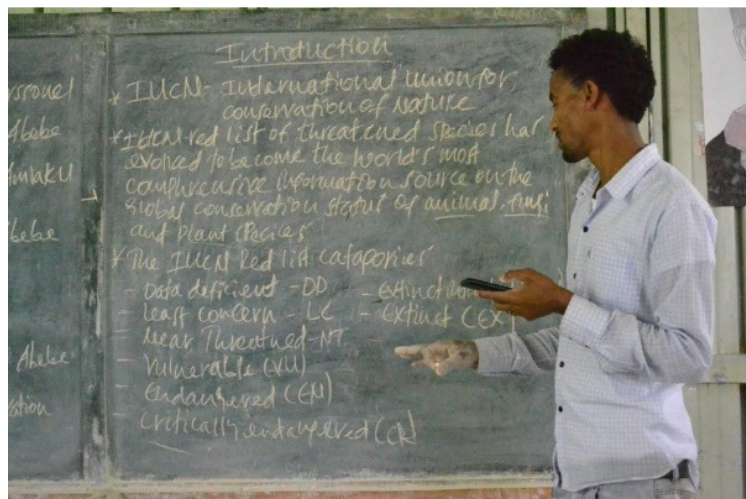 rssonel
Abebe
Amlaku
Abebe
Abebe
ation
Introduction
* IUCN - International union for
conservation of Nature
* IUCN red list of threatened species has
evolved to become the world's most
comphrensive information source on the
global conservation status of animal, fungi
and plant species
* The IUCN Red list catagories
- Data deficient - DD - Extinction
- Least concern - LC - Extinct (EX)
- Near Threatned - NT
- Vulnerable (VU)
- Endangered (EN)
- Critically endangered (CR)